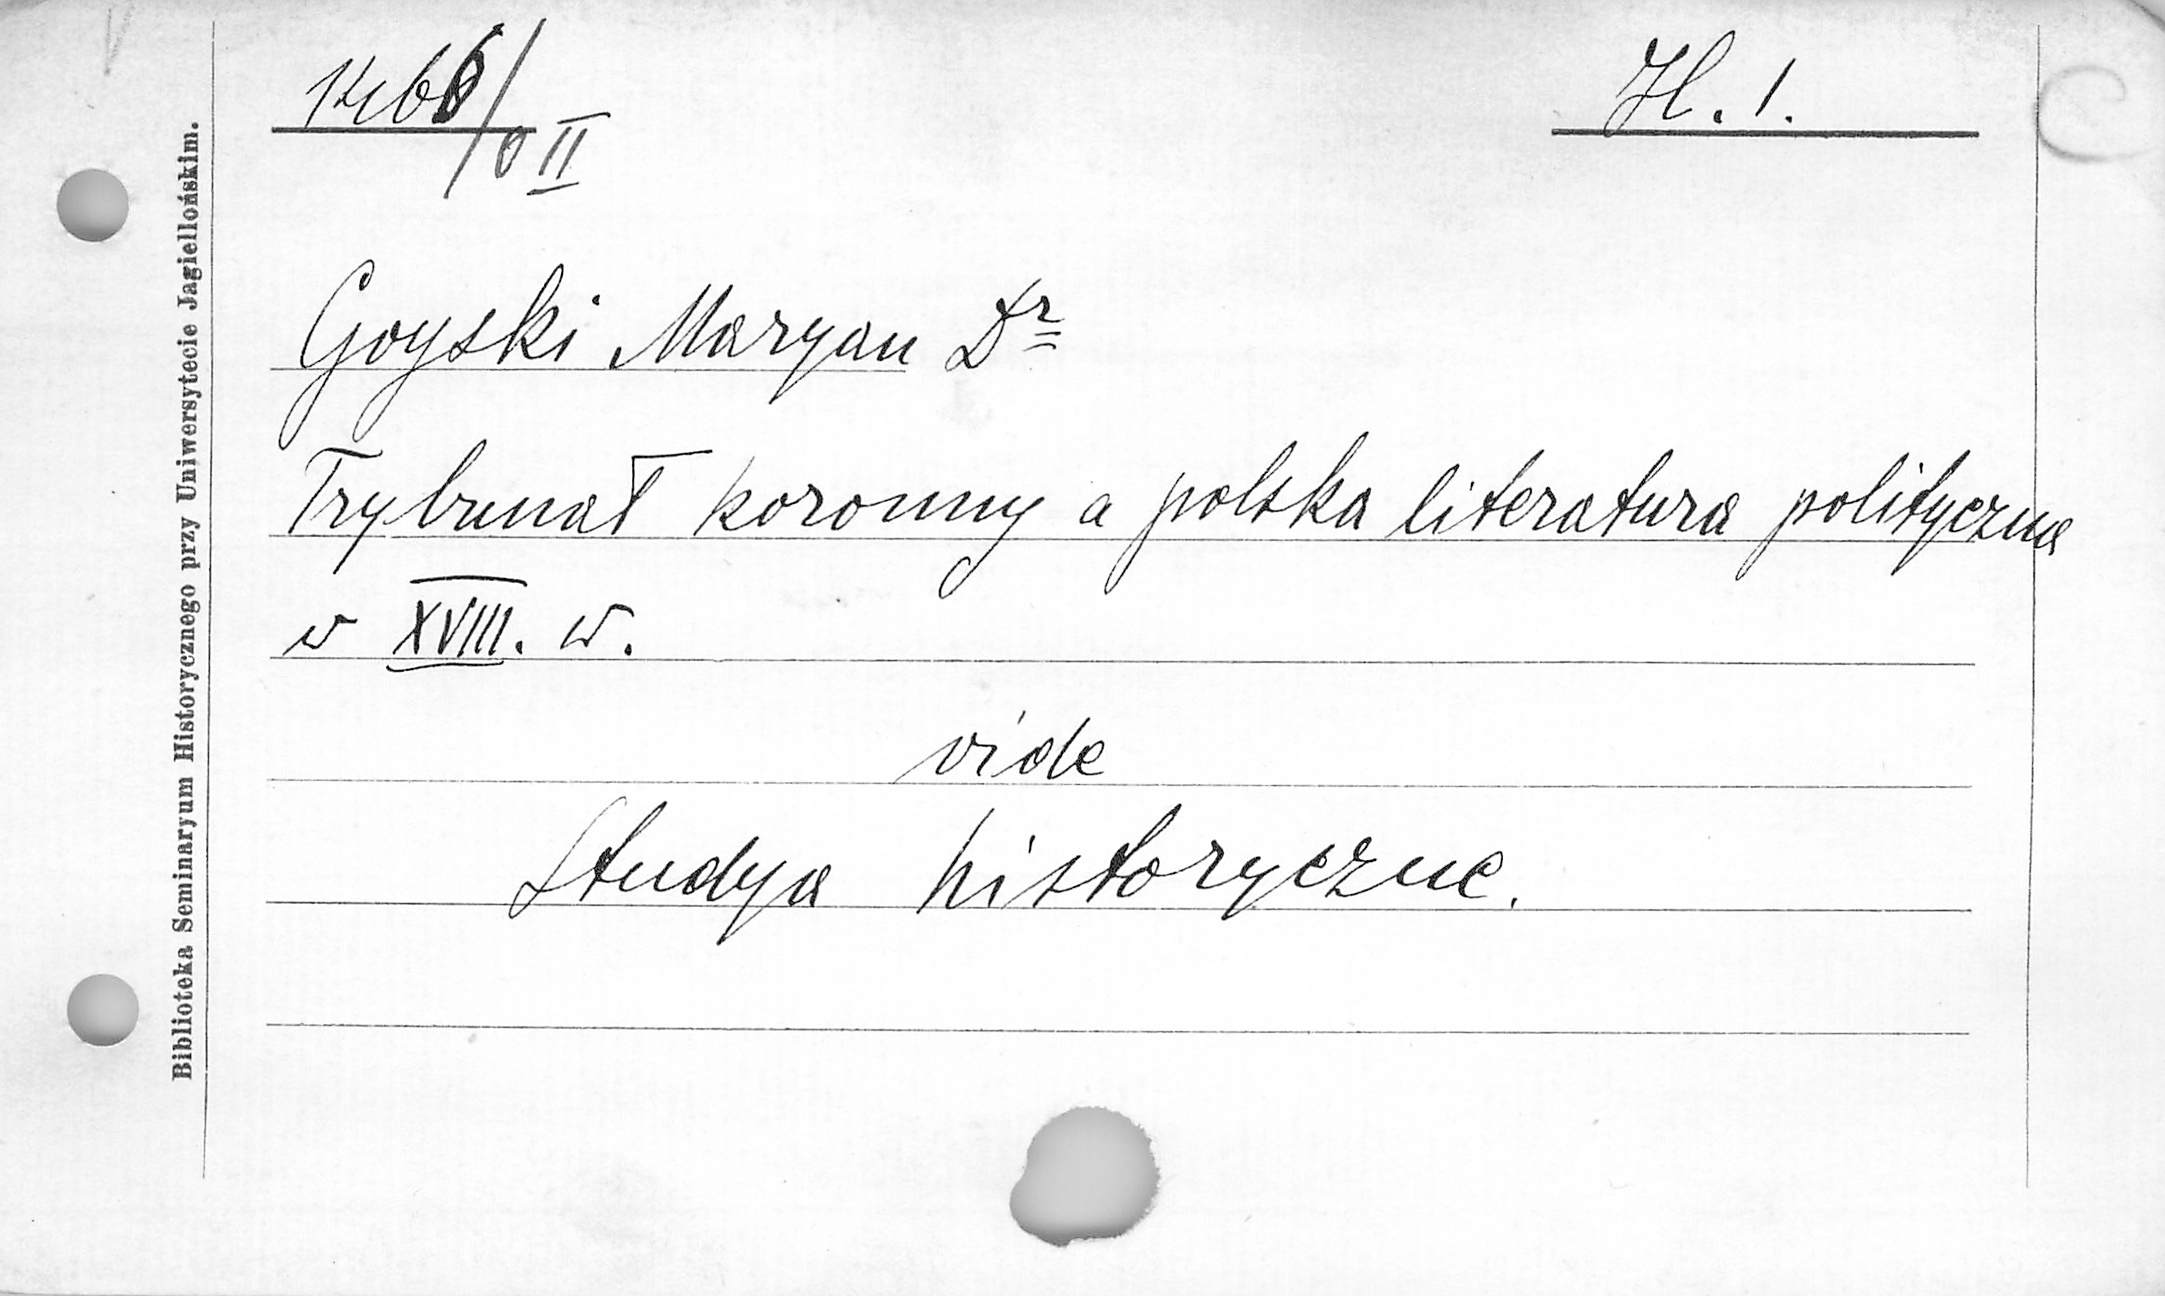 1466/0 II
H. 1.
Goyski Maryan Dr
Trybunał koronny a polska literatura polityczna
w XVIII. w.
vide
Studya historyczne.
Biblioteka Seminaryum Historycznego przy Uniwersytecie Jagiellońskim.